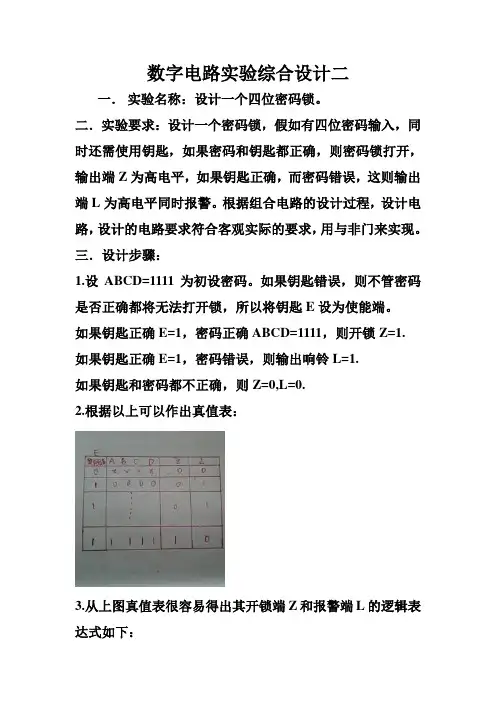 数字电路实验综合设计二
一． 实验名称：设计一个四位密码锁。
二．实验要求：设计一个密码锁，假如有四位密码输入，同
时还需使用钥匙，如果密码和钥匙都正确，则密码锁打开，
输出端 Z 为高电平，如果钥匙正确，而密码错误，这则输出
端 L 为高电平同时报警。根据组合电路的设计过程，设计电
路，设计的电路要求符合客观实际的要求，用与非门来实现。
三．设计步骤：
1.设 ABCD=1111 为初设密码。如果钥匙错误，则不管密码
是否正确都将无法打开锁，所以将钥匙 E 设为使能端。
如果钥匙正确 E=1，密码正确 ABCD=1111，则开锁 Z=1.
如果钥匙正确 E=1，密码错误，则输出响铃 L=1.
如果钥匙和密码都不正确，则 Z=0,L=0.
2.根据以上可以作出真值表：
E
A B C D Z
0 x x x x 0 0
1 0 0 0 0 0 1
1 0 1
1 1 1 1 1 1 0
3.从上图真值表很容易得出其开锁端 Z 和报警端 L 的逻辑表
达式如下：